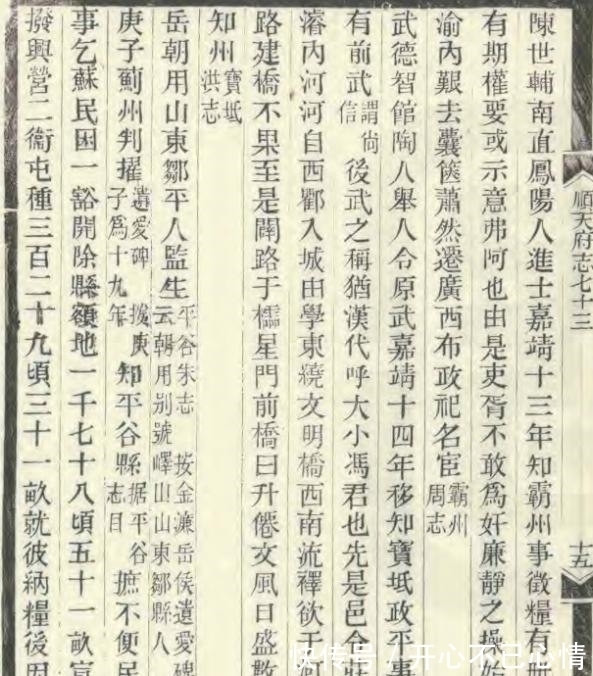 順天府志七十三
十五
陳世輔南直鳳陽人進士嘉靖十三年知霸州事徵糧有冊
有期權要或示意弗阿也由是吏胥不敢爲奸廉靜之操始
渝內艱去囊篋蕭然遷廣西布政祀名宦霸州周志
武德智館陶人舉人令原武嘉靖十四年移知寶坻政平事
有前武謂尙信後武之稱猶漢代呼大小馮君也先是邑令莊
濬內河河自西鄽入城由學東繞文明橋西南流禪欲于河
路建橋不果至是闢路于櫺星門前橋曰升僊文風日盛數
知州寶坻洪志
岳朝用山東鄒平人監生平谷朱志 按金濂岳侯遺愛碑云朝用別號嶧山山東鄒縣人
庚子薊州判擢遺愛碑 按庚子爲十九年知平谷縣据平谷志目摭不便民
事乞蘇民困一豁開除縣額地一千七十八頃五十一畝宣
撥興營二衞屯種三百二十九頃三十一畝就彼納糧後因
快传号/开心不已心情